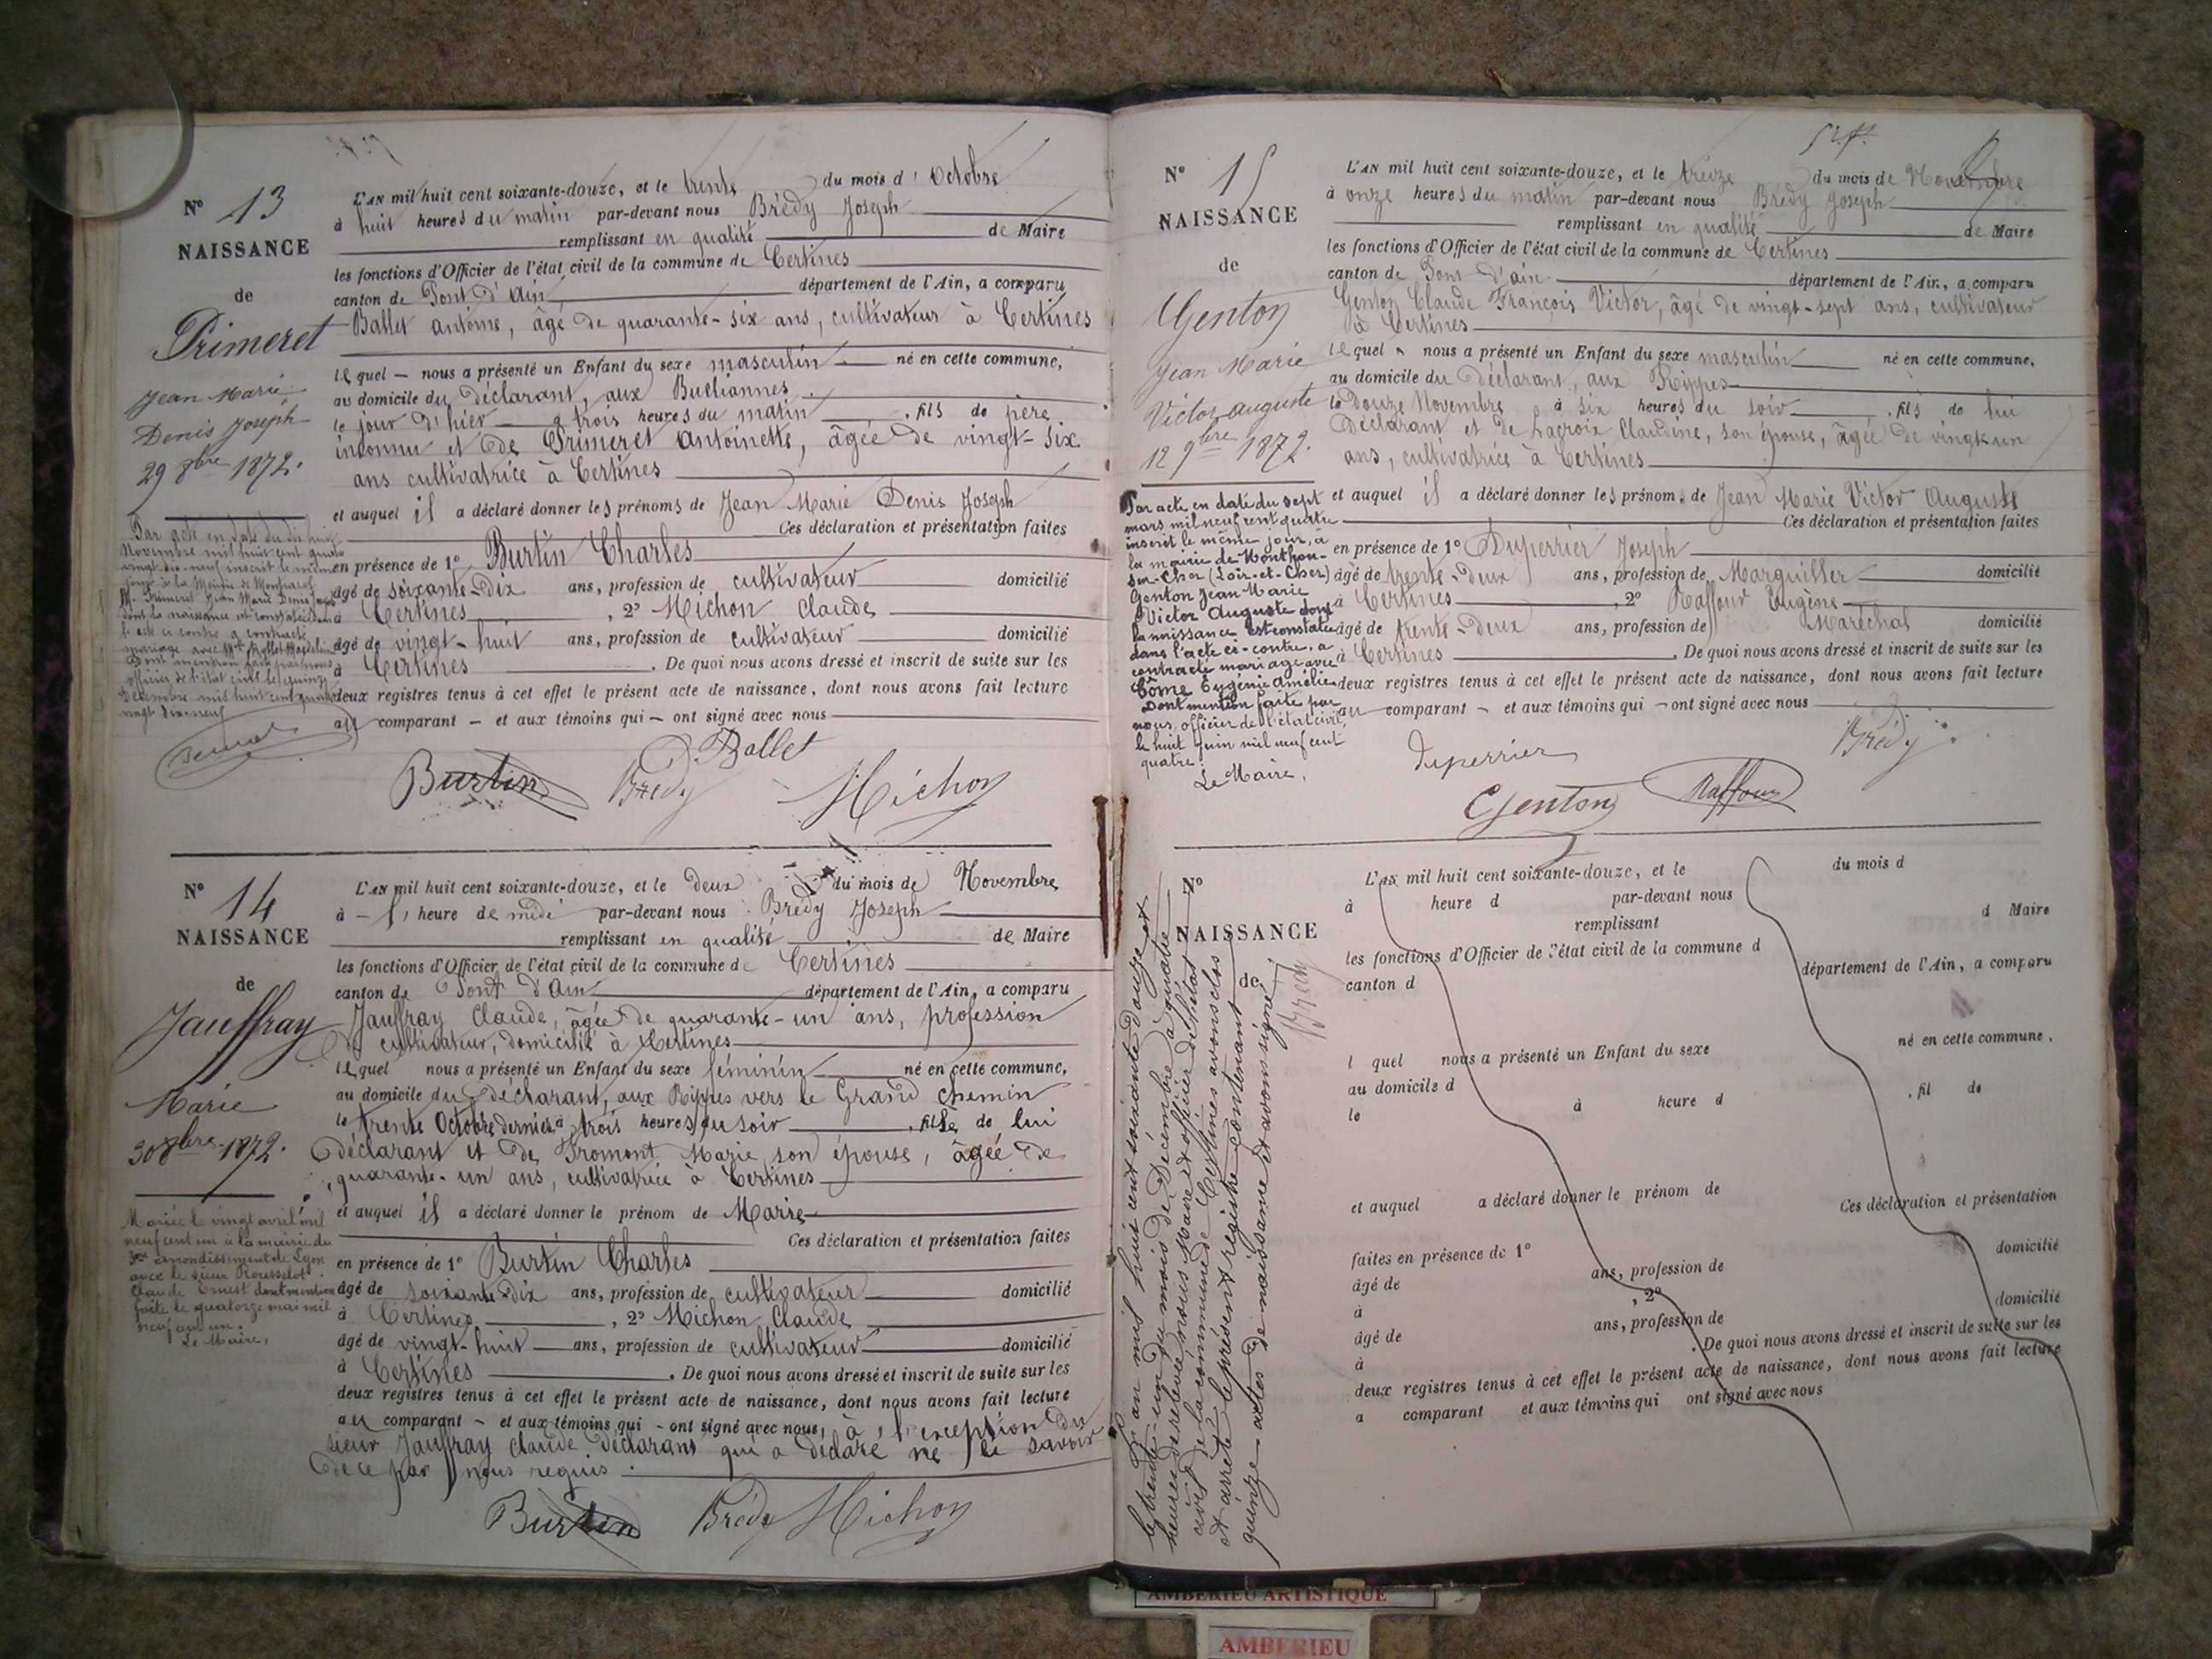 N° 13
NAISSANCE
de
Primeret
Jean Marie
Denis Joseph
29 8bre 1872.
Par acte en date du dix huit
Novembre mil huit cent quatre
vingt dix-neuf inscrit le même
jour à la Mairie de
M. Primeret Jean Marie Denis Joseph
dont la naissance est constatée dans
l'acte ci contre a contracté
mariage avec Mlle
Dont mention faite par nous
officier de l'état civil le quinze
Décembre mil huit cent quatre
vingt dix-neuf
L'AN mil huit cent soixante-douze, et le trente du mois d'Octobre
à huit heures du matin par-devant nous Brédy Joseph
remplissant en qualité de Maire
les fonctions d'Officier de l'état civil de la commune de Certines
canton de Pont d'Ain département de l'Ain, a comparu
Ballet antoine, âgé de quarante-six ans, cultivateur à Certines
lequel nous a présenté un Enfant du sexe masculin né en cette commune,
au domicile du déclarant, aux
le jour d'hier à trois heures du matin, fils de père
inconnu et de Primeret Antoinette, âgée de vingt-six
ans cultivatrice à Certines
et auquel il a déclaré donner les prénoms de Jean Marie Denis Joseph
Ces déclaration et présentation faites
en présence de 1° Burtin Charles
âgé de soixante-dix ans, profession de cultivateur domicilié
à Certines, 2° Michon Claude
âgé de vingt-huit ans, profession de cultivateur domicilié
à Certines. De quoi nous avons dressé et inscrit de suite sur les
deux registres tenus à cet effet le présent acte de naissance, dont nous avons fait lecture
au comparant – et aux témoins qui – ont signé avec nous
Ballet
Burtin Brédy Michon
N° 14
NAISSANCE
de
Jauffray
Marie
30 8bre 1872.
Mariée le vingt avril mil
neuf cent un à la mairie du
3me arrondissement de Lyon
avec le sieur Rousselot
Claude Ernest dont mention
faite le quatorze mai mil
neuf cent un.
Le Maire,
L'AN mil huit cent soixante-douze, et le deux du mois de Novembre
à l'heure de midi par-devant nous Brédy Joseph
remplissant en qualité de Maire
les fonctions d'Officier de l'état civil de la commune de Certines
canton de Pont d'Ain département de l'Ain, a comparu
Jauffray Claude, âgée de quarante-un ans, profession
de cultivateur, domicilié à Certines
lequel nous a présenté un Enfant du sexe féminin né en cette commune,
au domicile du déclarant, aux Rippes vers le Grand chemin
le trente Octobre dernier à trois heures du soir, fille de lui
déclarant et de Fromont Marie son épouse, âgée de
quarante-un ans, cultivatrice à Certines
et auquel il a déclaré donner le prénom de Marie
Ces déclaration et présentation faites
en présence de 1° Burtin Charles
âgé de soixante-dix ans, profession de cultivateur domicilié
à Certines, 2° Michon Claude
âgé de vingt-huit ans, profession de cultivateur domicilié
à Certines. De quoi nous avons dressé et inscrit de suite sur les
deux registres tenus à cet effet le présent acte de naissance, dont nous avons fait lecture
au comparant – et aux témoins qui – ont signé avec nous, à l'exception du
sieur Jauffray Claude déclarant qui a déclaré ne le savoir
de ce par nous requis.
Burtin Brédy Michon
N° 15
NAISSANCE
de
Genton
Jean Marie
Victor auguste
12 9bre 1872.
Par acte en date du sept
mars mil neuf cent quatre
inscrit le même jour, à
la mairie de Monthou-
sur-Cher (Loir-et-Cher)
Genton Jean Marie
Victor Auguste dont
la naissance est constatée
dans l'acte ci-contre, a
contracté mariage avec
Côme Eugénie Amélie
Dont mention faite par
nous, officier de l'état civil,
le huit juin mil neuf cent
quatre.
Le Maire,
L'AN mil huit cent soixante-douze, et le treize du mois de Novembre
à onze heures du matin par-devant nous Brédy Joseph
remplissant en qualité de Maire
les fonctions d'Officier de l'état civil de la commune de Certines
canton de Pont d'ain département de l'Ain, a comparu
Genton Claude François Victor, âgé de vingt-sept ans, cultivateur
à Certines
lequel nous a présenté un Enfant du sexe masculin né en cette commune,
au domicile du déclarant, aux Rippes
le Douze Novembre à six heures du soir, fils de lui
Déclarant et de Lacroix Claudine, son épouse, âgée de vingt un
ans, cultivatrice à Certines
et auquel il a déclaré donner les prénoms de Jean Marie Victor Auguste
Ces déclaration et présentation faites
en présence de 1° Duperrier Joseph
âgé de trente-deux ans, profession de Marguiller domicilié
à Certines, 2° Raffour Eugène
âgé de trente-deux ans, profession de Maréchal domicilié
à Certines. De quoi nous avons dressé et inscrit de suite sur les
deux registres tenus à cet effet le présent acte de naissance, dont nous avons fait lecture
au comparant – et aux témoins qui – ont signé avec nous
Duperrier Brédy
Genton Raffour
N°
NAISSANCE
de
L'AN mil huit cent soixante-douze, et le du mois d
à heure d par-devant nous
remplissant d Maire
les fonctions d'Officier de l'état civil de la commune d
canton d département de l'Ain, a comparu
l quel nous a présenté un Enfant du sexe né en cette commune,
au domicile d
le à heure d , fil de
et auquel a déclaré donner le prénom de
Ces déclaration et présentation
faites en présence de 1°
âgé de ans, profession de domicilié
à , 2°
âgé de ans, profession de domicilié
à . De quoi nous avons dressé et inscrit de suite sur les
deux registres tenus à cet effet le présent acte de naissance, dont nous avons fait lecture
a comparant et aux témoins qui ont signé avec nous
L'an mil huit cent soixante douze et
le trente-un du mois de Décembre à quatre
heures de relevée, nous Maire et officier de l'état
civil de la commune de Certines avons clos
et arrêté le présent registre contenant
quinze actes de naissance et avons signé,
Brédy
AMBERIEU ARTISTIQUE
AMBERIEU